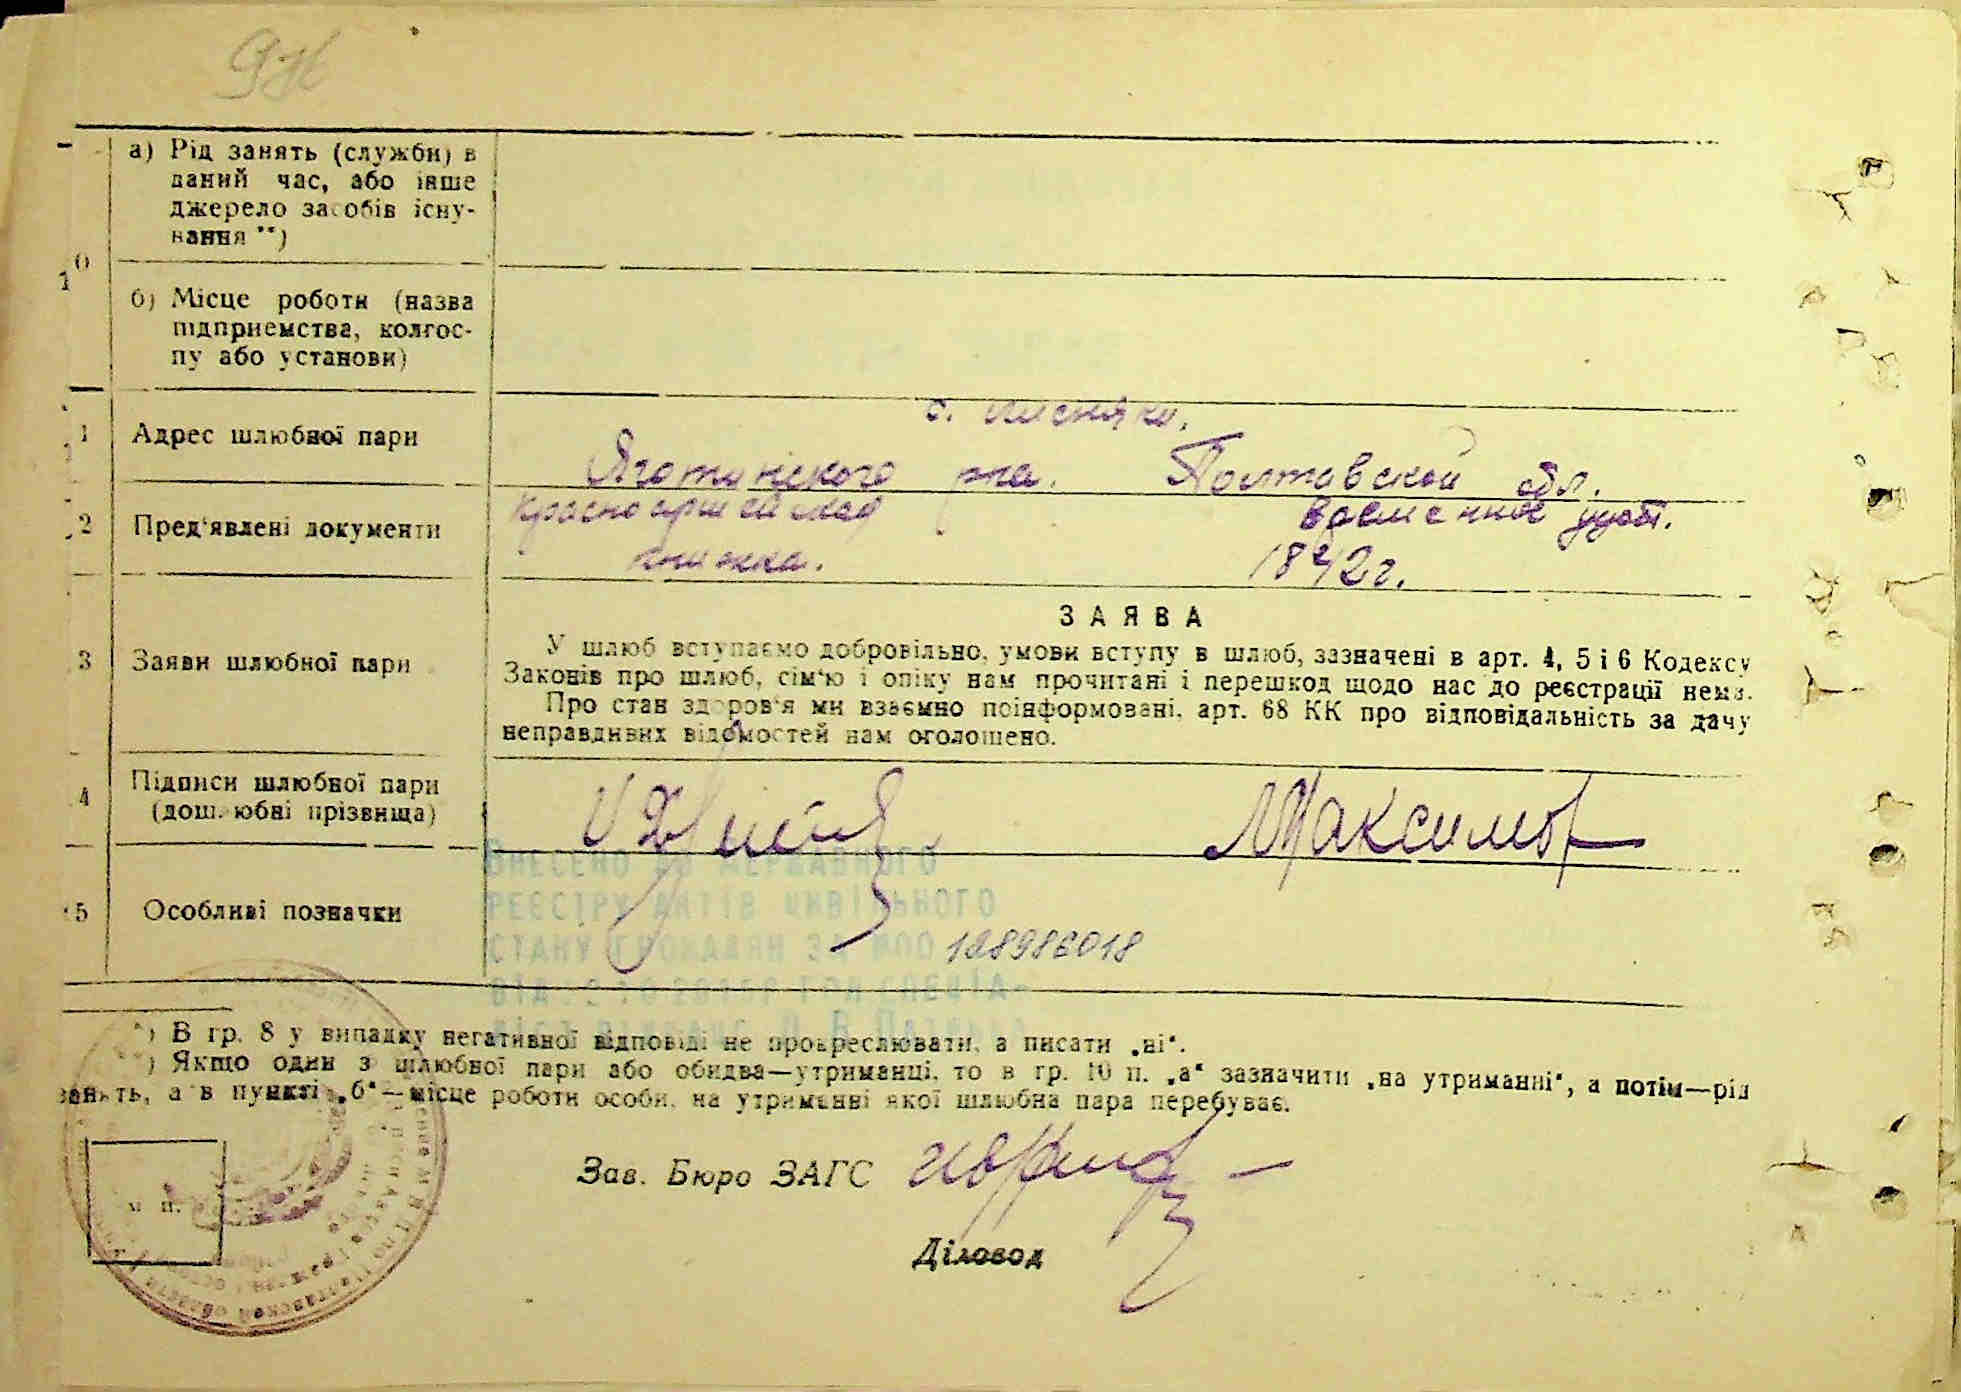 а) Рід занять (служби) в
даний час, або інше
джерело засобів існу-
вання **)
10
б) Місце роботи (назва
підприємства, колгос-
пу або установи)
с.
1 Адрес шлюбної пари
Яготинского р-на. Полтавской обл.
2 Пред'явлені документи
Красноармейская временное удост.
книжка. 1842 г.
ЗАЯВА
3 Заяви шлюбної пари
У шлюб вступаємо добровільно, умови вступу в шлюб, зазначені в арт. 4, 5 і 6 Кодексу
Законів про шлюб, сім'ю і опіку нам прочитані і перешкод щодо нас до реєстрації нема.
Про стан здоров'я ми взаємно поінформовані, арт. 68 КК про відповідальність за дачу
неправдивих відомостей нам оголошено.
4 Підписи шлюбної пари
(дошлюбні прізвища)
Максимов
5 Особливі позначки
ВНЕСЕНО ДО ДЕРЖАВНОГО
РЕЄСТРУ АКТІВ ЦИВІЛЬНОГО
СТАНУ ГРОМАДЯН ЗА №00 128986018
*) В гр. 8 у випадку негативної відповіді не прокреслювати, а писати „ні“.
**) Якщо один з шлюбної пари або обидва—утриманці, то в гр. 10 п. „а“ зазначити „на утриманні“, а потім—рід
занять, а в пункті „б“—місце роботи особи, на утриманні якої шлюбна пара перебуває.
Зав. Бюро ЗАГС
м. п.
Діловод